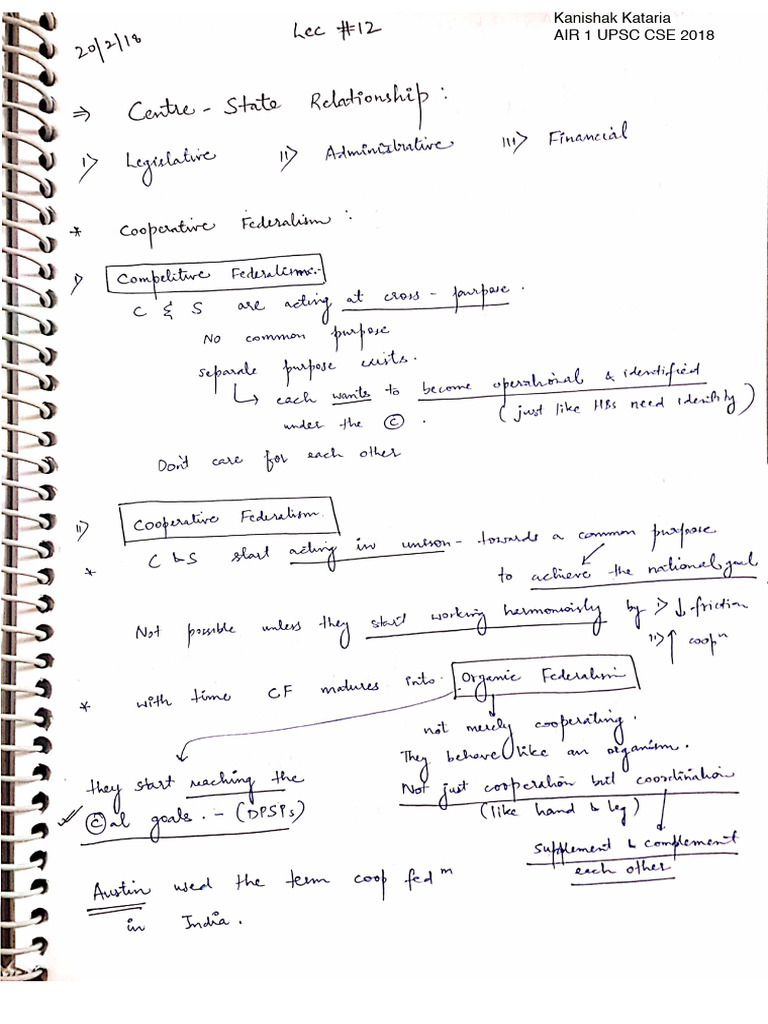 Kanishak Kataria
AIR 1 UPSC CSE 2018
20/2/18
Lec #12
⇒ Centre - State Relationship :
i) Legislative ii) Administrative iii) Financial
* Cooperative Federalism :
i) Competitive Federalism.
C & S are acting at cross - purpose.
No common purpose
separate purpose exists.
↳ each wants to become operational & identified
under the Ⓒ. (just like HBs need identity)
Don't care for each other
ii) Cooperative Federalism.
* C & S start acting in unison - towards a common purpose
to achieve the national goal
Not possible unless they start working harmoniously by i) ↓ friction
ii) ↑ coopⁿ
* with time CF matures into Organic Federalism
not merely cooperating.
They behave like an organism.
Not just cooperation but coordination
(like hand & leg)
supplement & complement
each other
they start reaching the
✓ Ⓒal goals. - (DPSPs)
Austin used the term coop fedᵐ
in India.